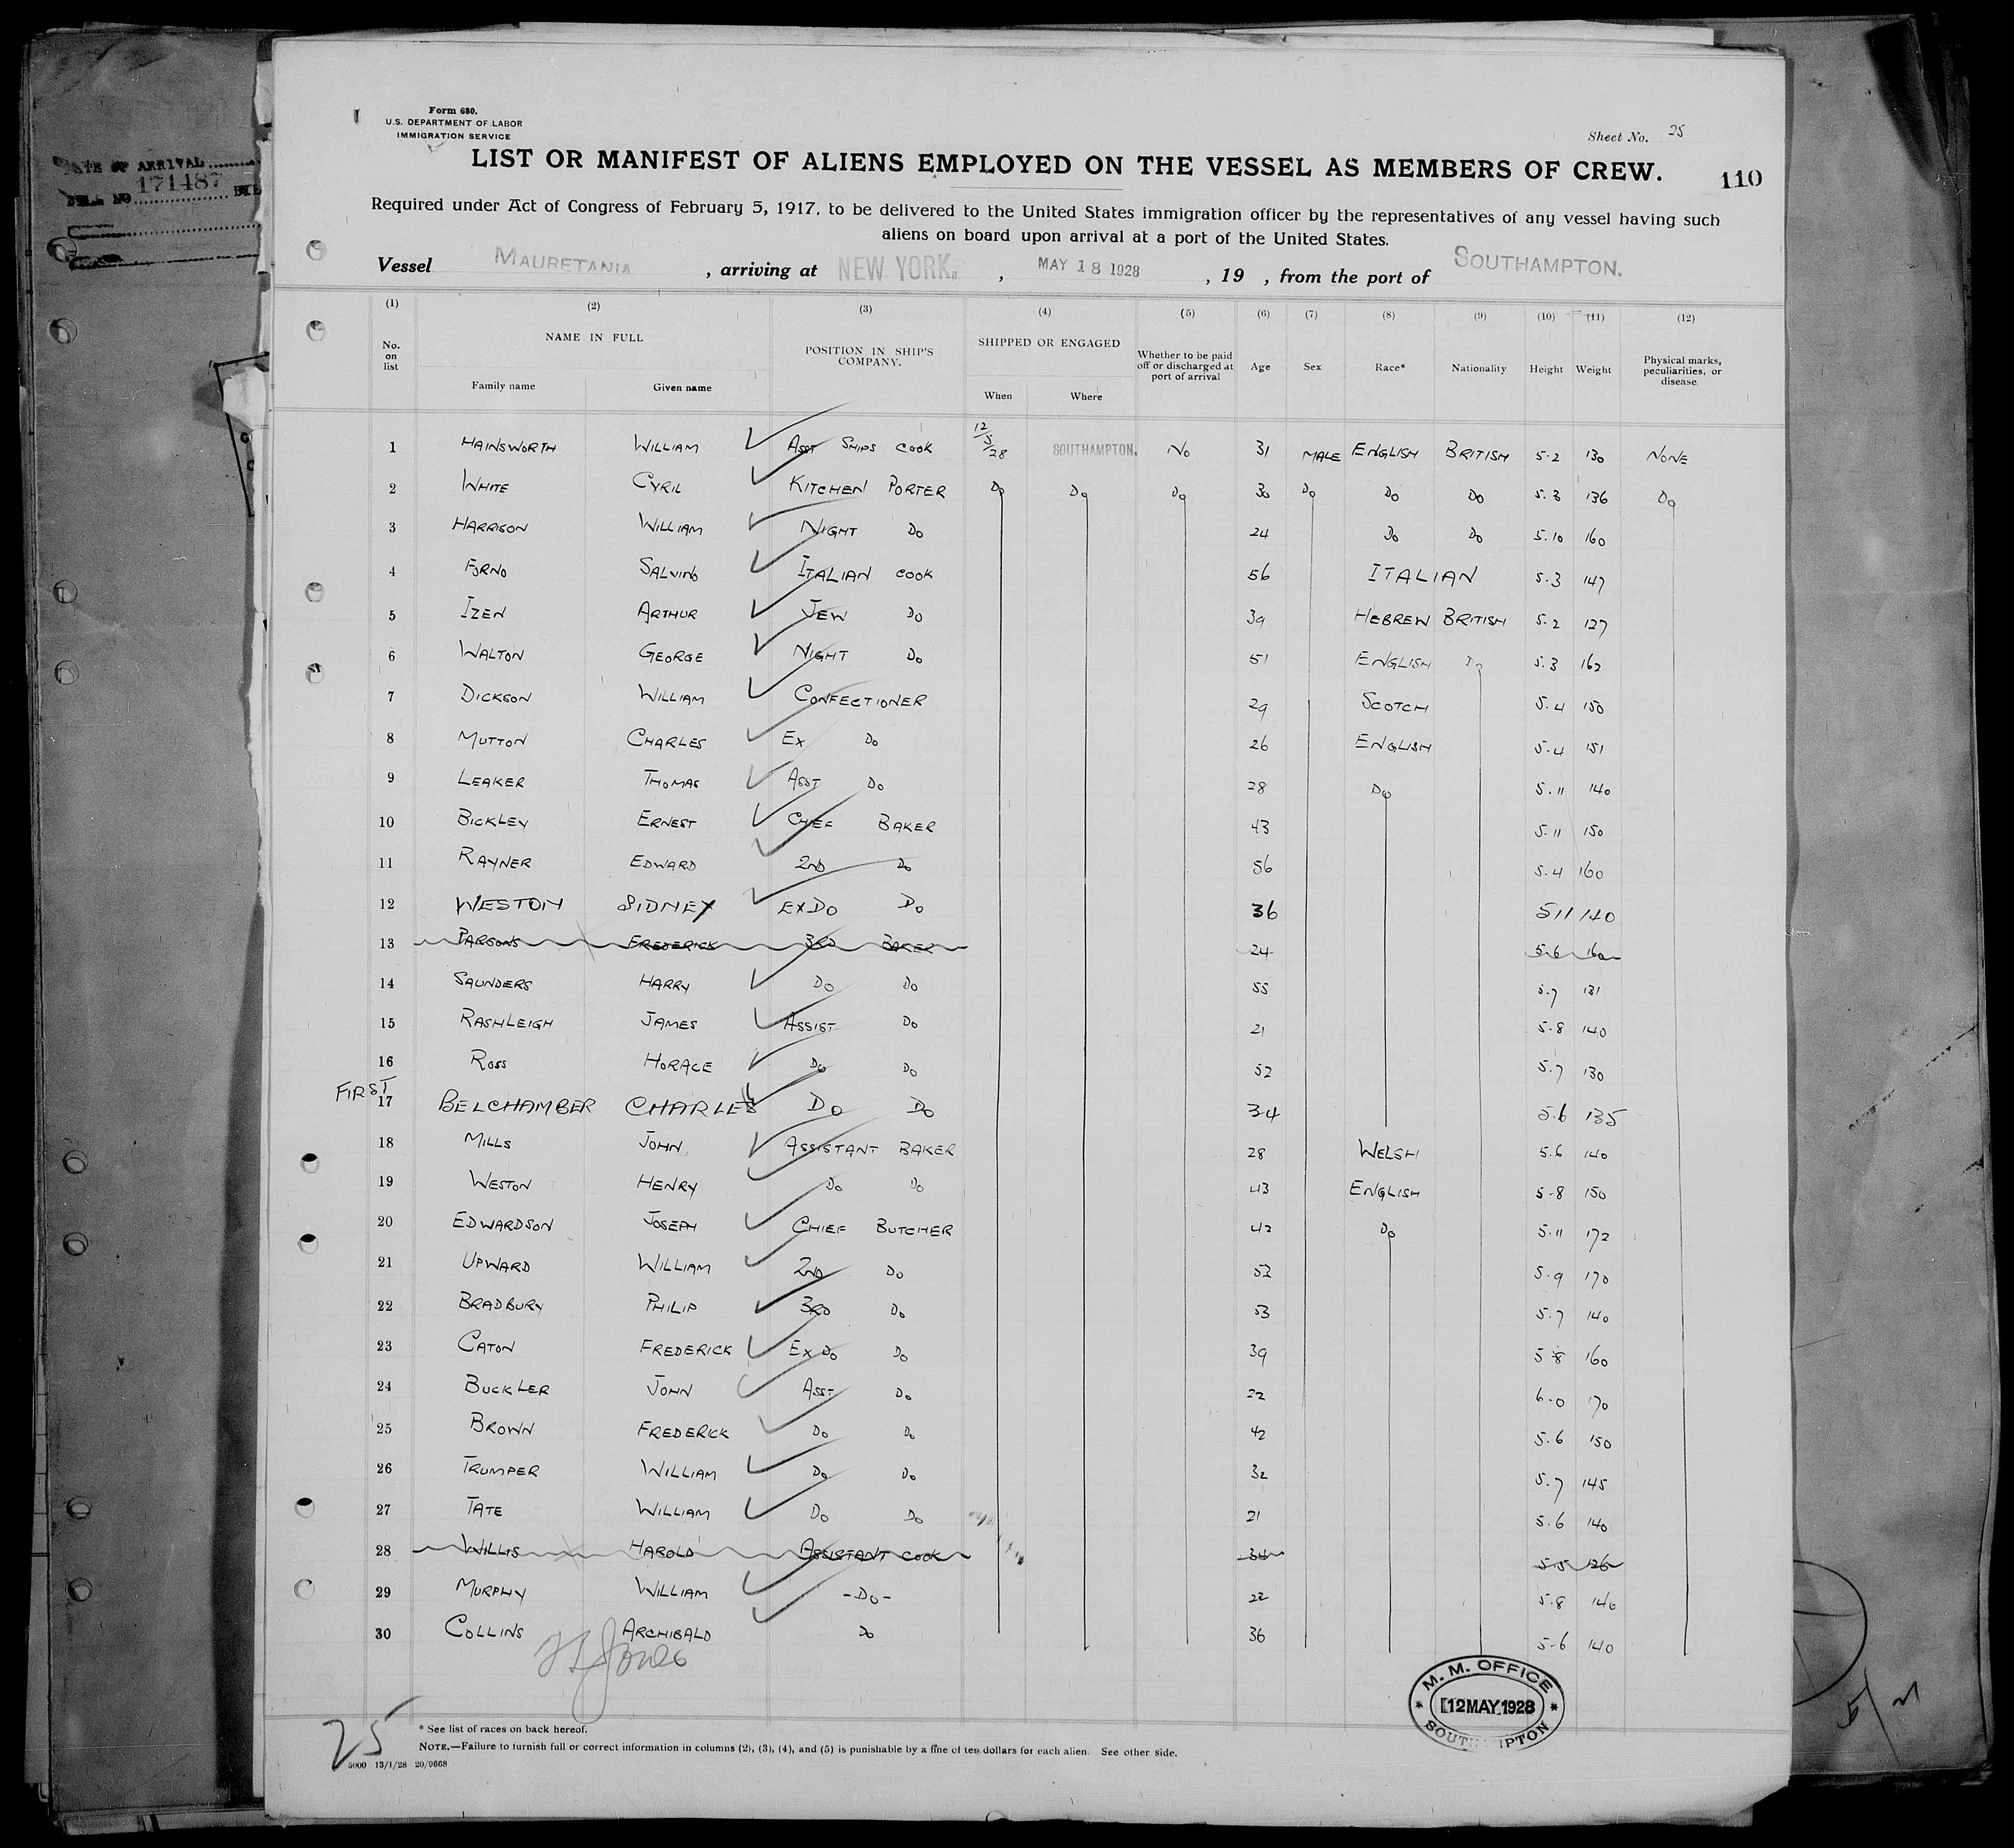 Form 680.
U.S. DEPARTMENT OF LABOR
IMMIGRATION SERVICE
Sheet No. 25
LIST OR MANIFEST OF ALIENS EMPLOYED ON THE VESSEL AS MEMBERS OF CREW.
110
Required under Act of Congress of February 5, 1917, to be delivered to the United States immigration officer by the representatives of any vessel having such
aliens on board upon arrival at a port of the United States.
Vessel MAURETANIA , arriving at NEW YORK. , MAY 18 1928 , 19 , from the port of SOUTHAMPTON.
(1) (2) (3) (4) (5) (6) (7) (8) (9) (10) (11) (12)
No. on list NAME IN FULL Family name Given name POSITION IN SHIP'S COMPANY. SHIPPED OR ENGAGED When Where Whether to be paid off or discharged at port of arrival Age Sex Race* Nationality Height Weight Physical marks, peculiarities, or disease.
1 HAINSWORTH WILLIAM ASST SHIPS COOK 12/5/28 SOUTHAMPTON. NO 31 MALE ENGLISH BRITISH 5.2 130 NONE
2 WHITE CYRIL KITCHEN PORTER DO DO DO 30 DO DO DO 5.3 136 DO
3 HARRISON WILLIAM NIGHT DO 24 DO DO 5.10 160
4 FORNO SALVINO ITALIAN COOK 56 ITALIAN 5.3 147
5 IZEN ARTHUR JEW DO 39 HEBREW BRITISH 5.2 127
6 WALTON GEORGE NIGHT DO 51 ENGLISH DO 5.3 162
7 DICKSON WILLIAM CONFECTIONER 29 SCOTCH 5.4 150
8 MUTTON CHARLES EX DO 26 ENGLISH 5.4 151
9 LEAKER THOMAS ASST DO 28 DO 5.11 140
10 BICKLEY ERNEST CHEF BAKER 43 5.11 150
11 RAYNER EDWARD 2ND DO 56 5.4 160
12 WESTON SIDNEY EXDO DO 36 511 140
13 PARSONS FREDERICK 3RD BAKER 24 5.6 160
14 SAUNDERS HARRY DO DO 55 5.7 131
15 RASHLEIGH JAMES ASSIST DO 21 5.8 140
16 ROSS HORACE DO DO 52 5.7 130
FIRST
17 BELCHAMBER CHARLES DO DO 34 5.6 135
18 MILLS JOHN ASSISTANT BAKER 28 WELSH 5.6 140
19 WESTON HENRY DO DO 43 ENGLISH 5.8 150
20 EDWARDSON JOSEPH CHIEF BUTCHER 42 DO 5.11 172
21 UPWARD WILLIAM 2ND DO 52 5.9 170
22 BRADBURY PHILIP 3RD DO 53 5.7 140
23 CATON FREDERICK EX DO DO 39 5.8 160
24 BUCKLER JOHN ASST DO 22 6.0 170
25 BROWN FREDERICK DO DO 42 5.6 150
26 TRUMPER WILLIAM DO DO 32 5.7 145
27 TATE WILLIAM DO DO 21 5.6 140
28 WILLIS HAROLD ASSISTANT COOK 34 5.5 126
29 MURPHY WILLIAM -DO- 22 5.8 140
30 COLLINS ARCHIBALD DO 36 5.6 140
M. M. OFFICE
12 MAY 1928
25
* See list of races on back hereof.
NOTE.—Failure to furnish full or correct information in columns (2), (3), (4), and (5) is punishable by a fine of ten dollars for each alien. See other side.
5000 13/1/28 20/9668
DATE OF ARRIVAL
171487